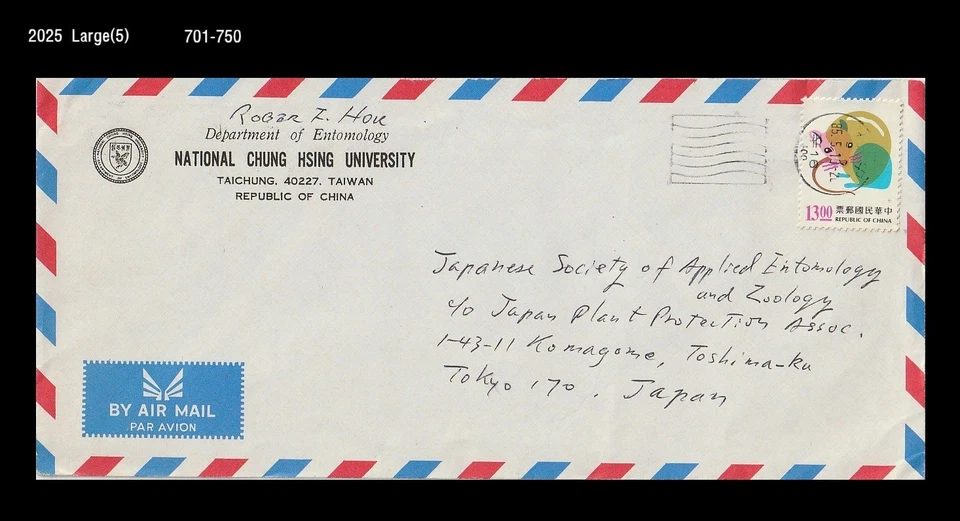 2025 Large(5)
701-750
Department of Entomology
NATIONAL CHUNG HSING UNIVERSITY
TAICHUNG, 40227, TAIWAN
REPUBLIC OF CHINA
13.00
票郵國民華中
REPUBLIC OF CHINA
Japanese Society of Applied Entomology
and Zoology
c/o Japan Plant Protection Assoc.
1-43-11 Komagome, Toshima-ku
Tokyo 170, Japan
BY AIR MAIL
PAR AVION